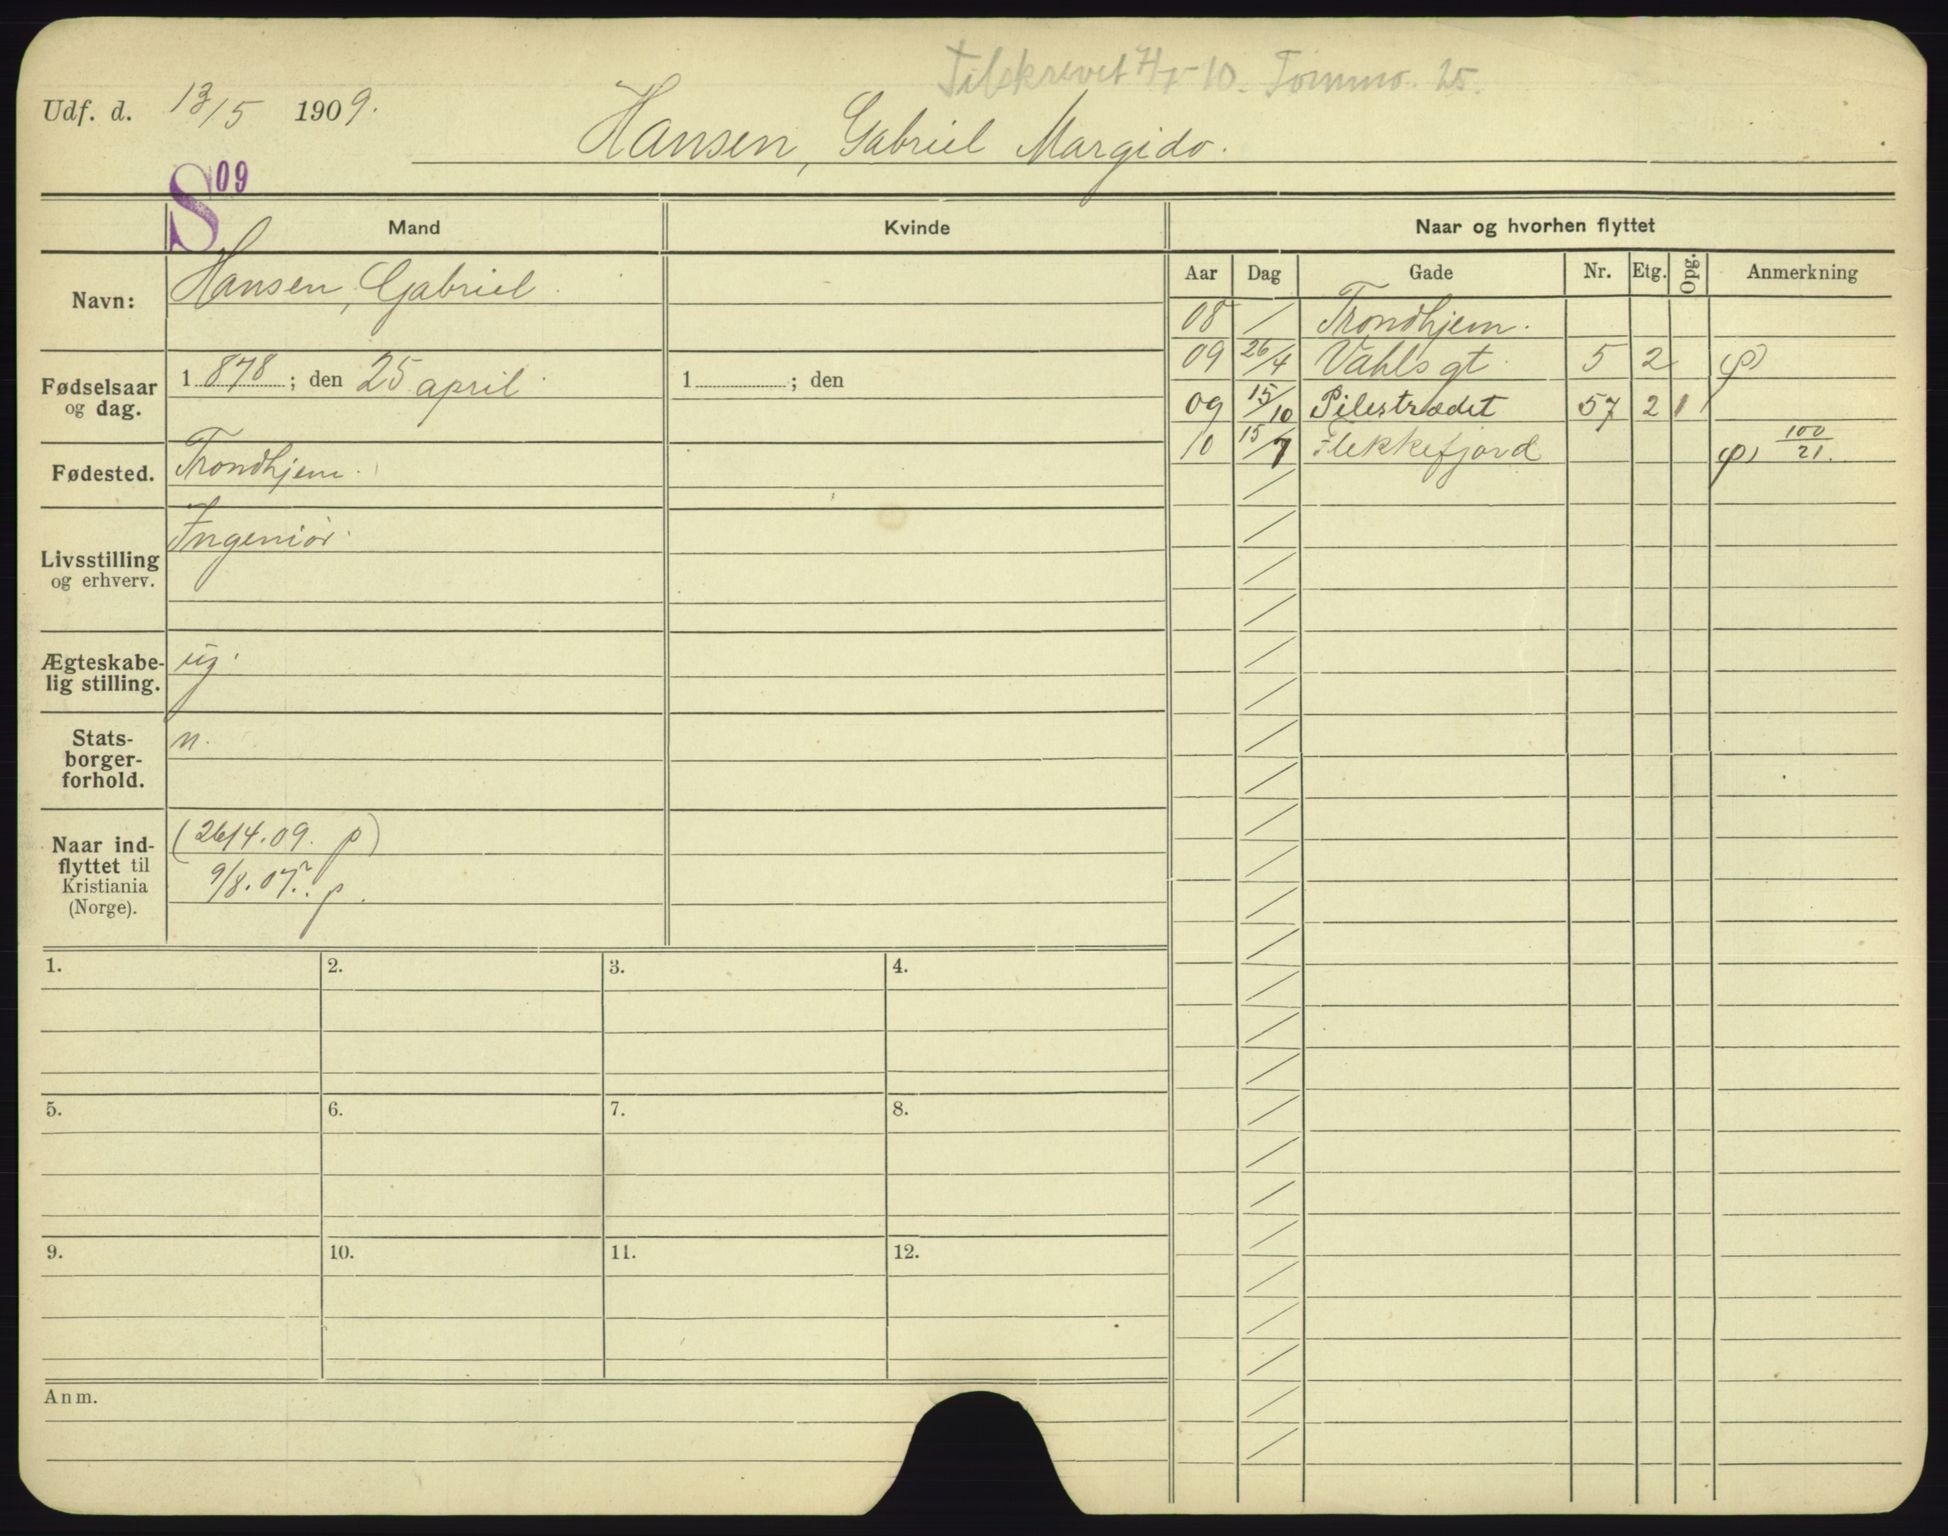 Tilskrevet 4/5-10. Tommo. 25.
Udf. d. 13/5 1909.
Hansen, Gabriel Margido.
S 09
Mand
Kvinde
Naar og hvorhen flyttet
Navn:
Hansen, Gabriel
Fødselsaar
og dag.
1 878 ; den 25 april
1 ; den
Fødested.
Trondhjem.
Livsstilling
og erhverv.
Ingeniör
Ægteskabe-
lig stilling.
ug.
Stats-
borger-
forhold.
n.
Naar ind-
flyttet til
Kristiania
(Norge).
(26/4.09. p)
9/8.07. p.
Aar Dag Gade Nr. Etg. Opg. Anmerkning
08 / Trondhjem.
09 26/4 Vahls gt 5 2 φ)
09 15/10 Pilestrædet 57 2 1
10 15/7 Flekkefjord φ) 100/21.
1. 2. 3. 4.
5. 6. 7. 8.
9. 10. 11. 12.
Anm.